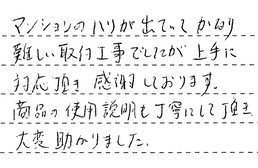 マンションのハリが出ていて かなり
難しい取付工事でしたが 上手に
対応頂き 感謝しております。
商品の使用説明も丁寧にして頂き
大変 助かりました。